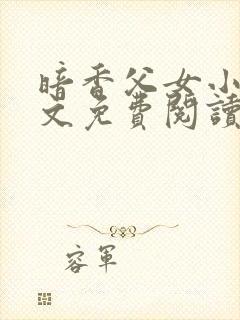 暗香父女小
文免費閱讀
容軍